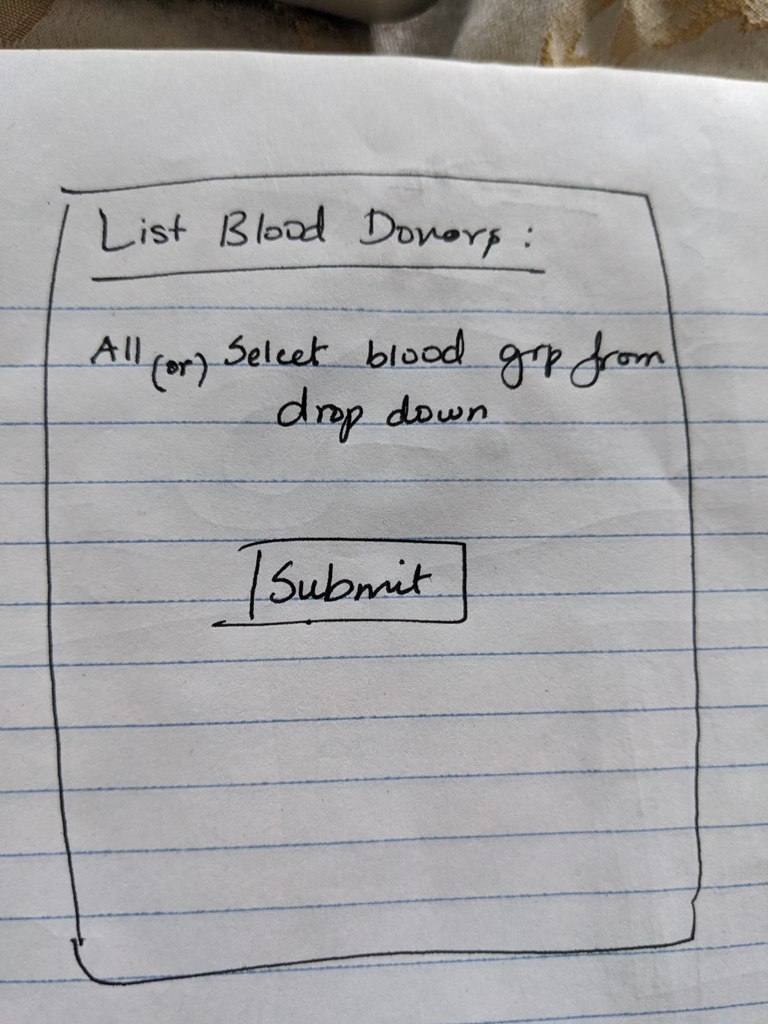 List Blood Donors:
All (or) Select blood grp from
drop down
Submit